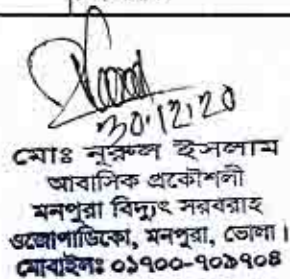 30.12.20
মোঃ নূরুল ইসলাম
আবাসিক প্রকৌশলী
মনপুরা বিদ্যুৎ সরবরাহ
ওজোপাডিকো, মনপুরা, ভোলা।
মোবাইলঃ ০১৭০০-৭০৯৭০৪